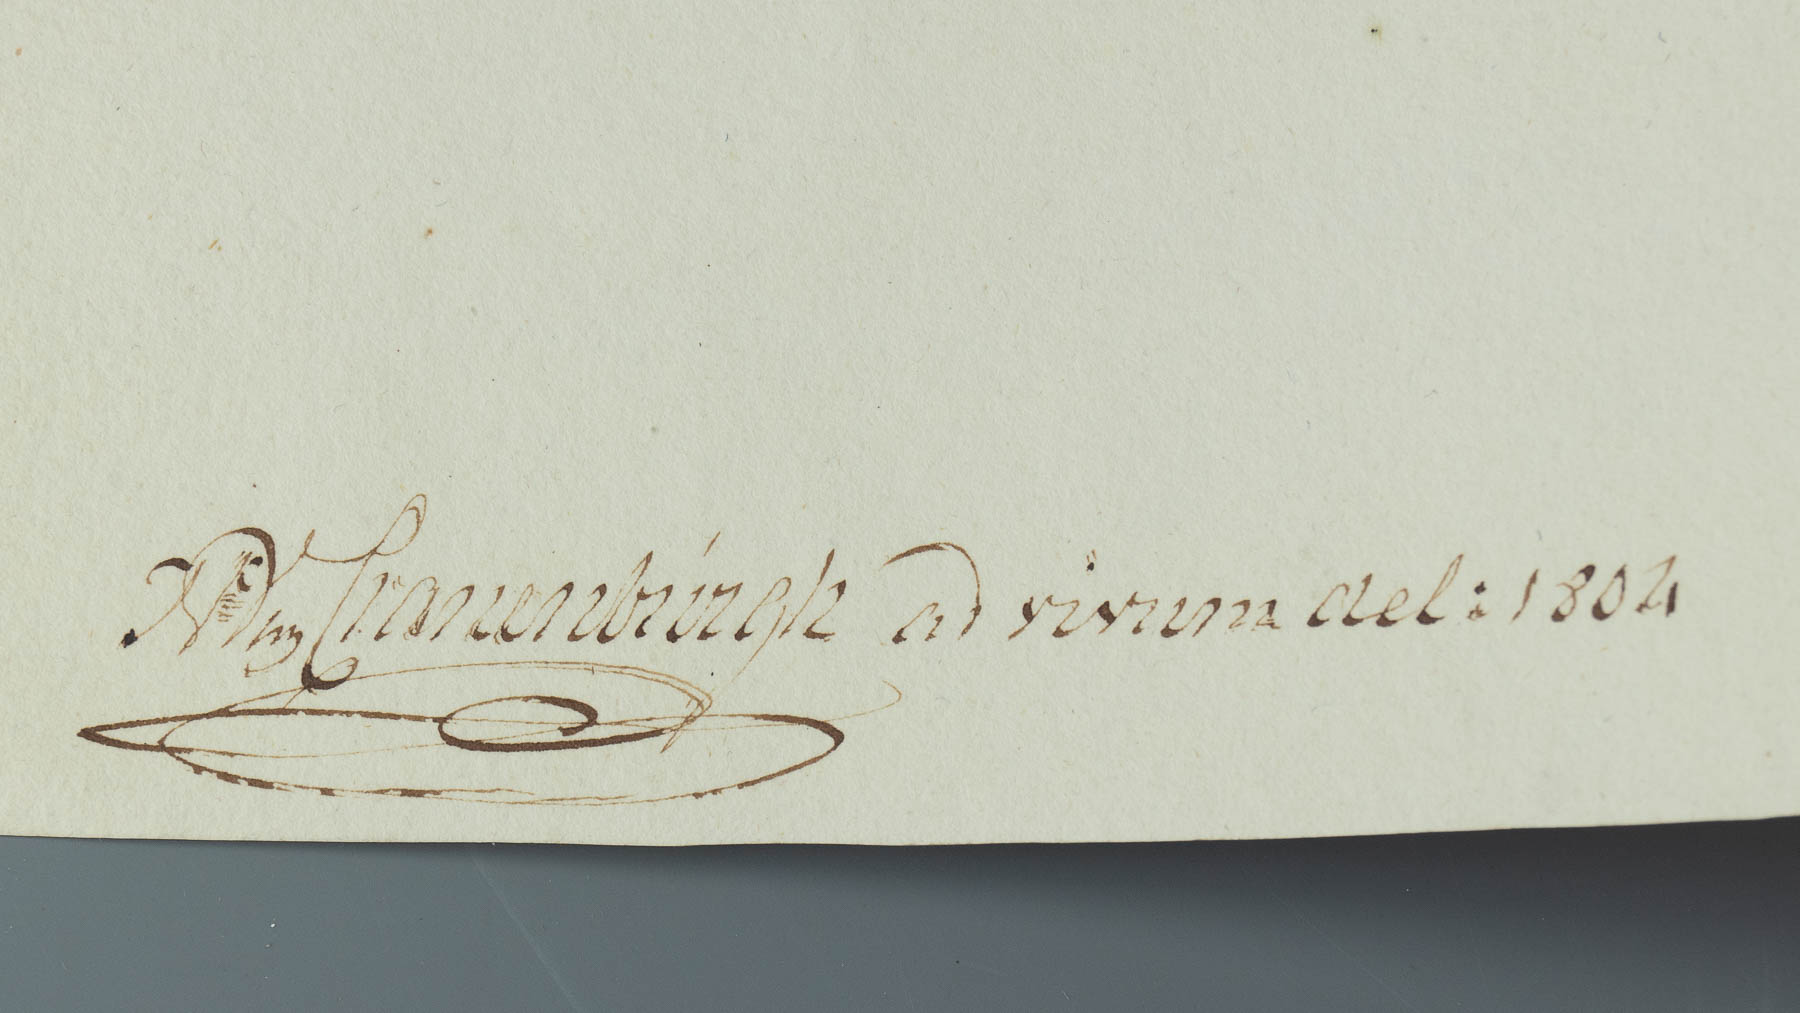 Cranenburgh ad vivum del: 1804